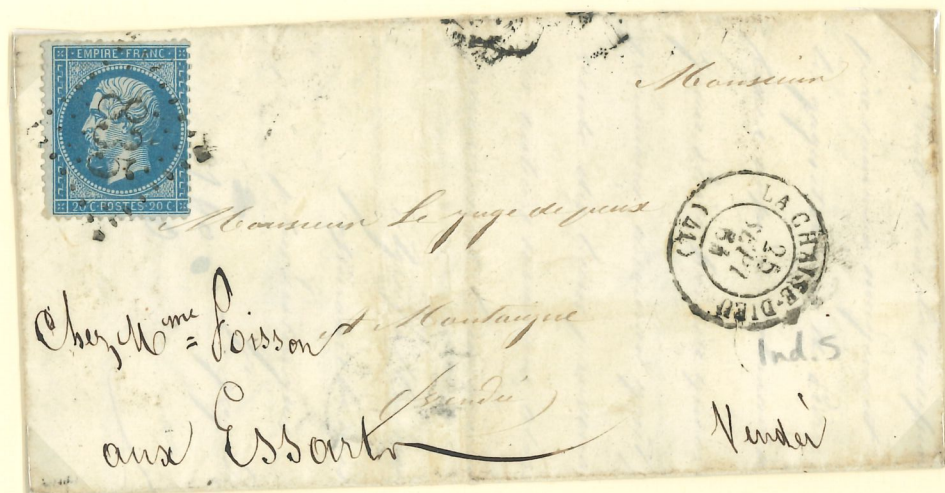 EMPIRE FRANC
20 C POSTES 20 C
Monsieur
Monsieur Le juge de paix
LA CHAISE-DIEU
25
SEPT
64
(41)
Ind. 5
Chez, Mme = Poisson
à Montaigue
Vendée
aux Essarts
Vendéé